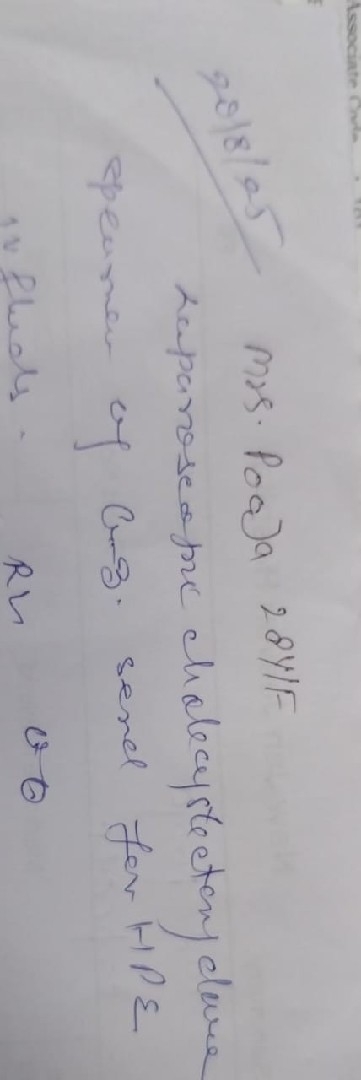 Associate Prof.
20/8/25
Mrs. Pooja 28Y/F
Laparoscopic cholecystectomy done
Specimen of G.B. send for HPE
IV fluids. RL